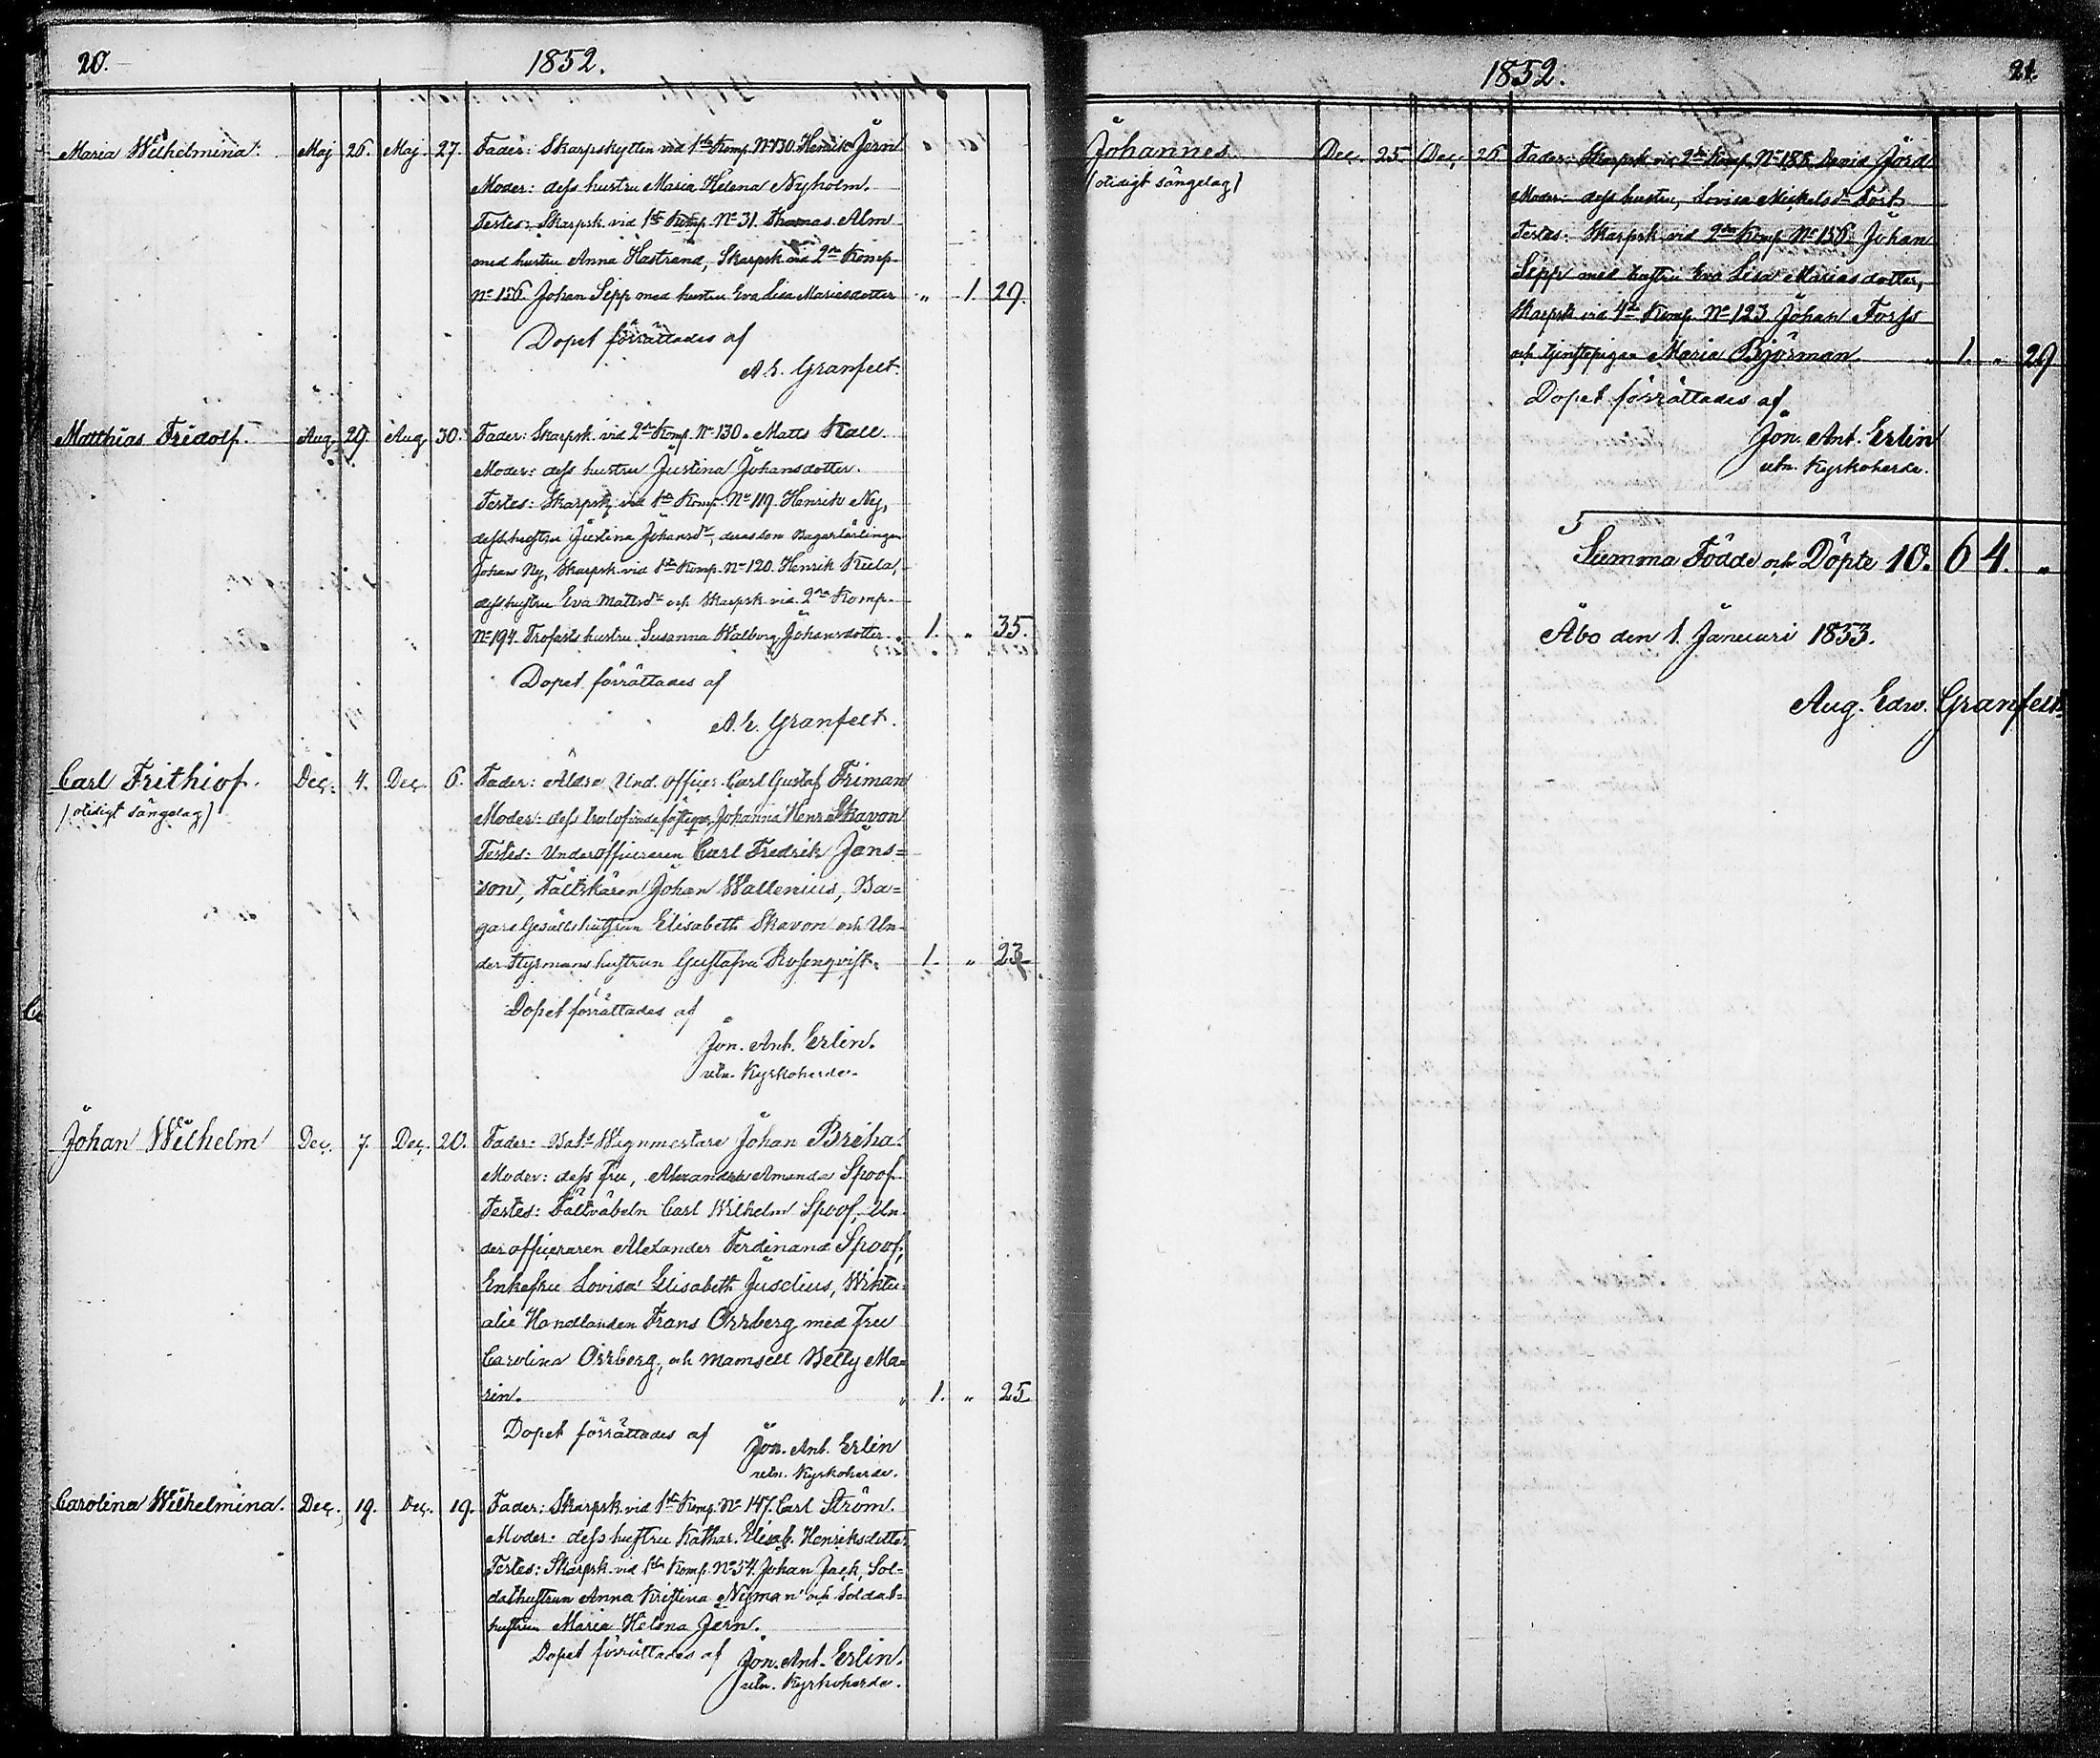 20.
1852.
Maria Wilhelmina. Maj 26. Maj. 27. Fader: Skarpskytten vid 1sta Komp. No 130. Henrik Jern
Moder: dess hustru Maria Helena Nyholm.
Testes: Skarpsk vid 1sta Komp. No 31. Thomas Alm
med hustru Anna Hastrand, Skarpsk vid 2dra Komp.
No 156. Johan Sepp med hustru Eva Lisa Mariasdotter „ 1. 29.
Dopet förrättades af
A. E. Granfelt.
Matthias Fridolf. Aug. 29. Aug. 30. Fader: Skarpsk. vid 2dra Komp. No 130. Matts Kall
Moder: dess hustru Justina Johansdotter.
Testes: Skarpsk vid 1sta Komp. No 119. Henrik Ny,
dess hustru Justina Johansdr, deras son Bagarlärlingen
Johan Ny, Skarpsk vid 1sta Komp. No 120. Henrik Kula,
dess hustru Eva Mattsdr och Skarpsk vid 2dra Komp.
No 194. Trofasts hustru Susanna Walborg Johansdotter. 1. „ 35.
Dopet förrättades af
A. E. Granfelt.
Carl Frithiof. Dec. 4. Dec. 6. Fader: Äldre Und. officer. Carl Gustaf Friman
(otidigt sängelag)
Moder: dess trolofvade Johanna Henr. Skavon
Testes: Underofficeraren Carl Fredrik Jans=
son, Fältskären Johan Wallenius, Ba=
gare Gesälls hustrun Elisabeth Skavon och Un=
der Styrmans hustrun Gustafva Rosenqvist. 1. „ 23
Dopet förrättades af
Jon. Ant. Erlin.
utn. Kyrkoherde.
Johan Wilhelm Dec. 7. Dec. 20. Fader: Bats Wagnmestare Johan Breha.
Moder: dess fru, Alexandra Amanda Spoof.
Testes: Fältväbeln Carl Wilhelm Spoof, Un=
derofficeraren Alexander Ferdinand Spoof,
Enkefru Lovisa Elisabeth Juselius, Wiktu=
alie Handlanden Frans Orrberg med Fru
Carolina Orrberg, och Mamsell Betty Ma=
rin. „ 1. „ 25
Dopet förrättades af
Jon. Ant. Erlin
utn. Kyrkoherde.
Carolina Wilhelmina. Dec. 19. Dec. 19. Fader: Skarpsk. vid 1sta Komp. No 147. Carl Ström.
Moder: dess hustru Kathar. Elisab. Henriksdotter
Testes: Skarpsk. vid 1sta Komp. No 54. Johan Jack, Sol=
dathustrun Anna Kristina Nyman och Soldat=
hustrun Maria Helena Jern.
Dopet förrättades af Jon. Ant. Erlin.
utn. Kyrkoherde.
1852.
21.
Johannes. Dec. 25 Dec. 26 Fader: Skarpsk vid 2dra Komp. No 188. David Jord
(otidigt sängelag)
Moder: dess hustru, Lovisa Mickelsdr
Testes: Skarpsk vid 2dra Komp No 156. Johan
Sepp med hustru Eva Lisa Mariasdotter,
Skarpsk vid 4de Komp. No 123. Johan Forss
och tjenstepigan Maria Björman. „ 1. „ 29
Dopet förrättades af
Jon. Ant. Erlin
utn. Kyrkoherde.
Summa Födde och Döpte 10. 6 4. „
Åbo den 1. Januari 1853.
Aug. Edw. Granfelt.